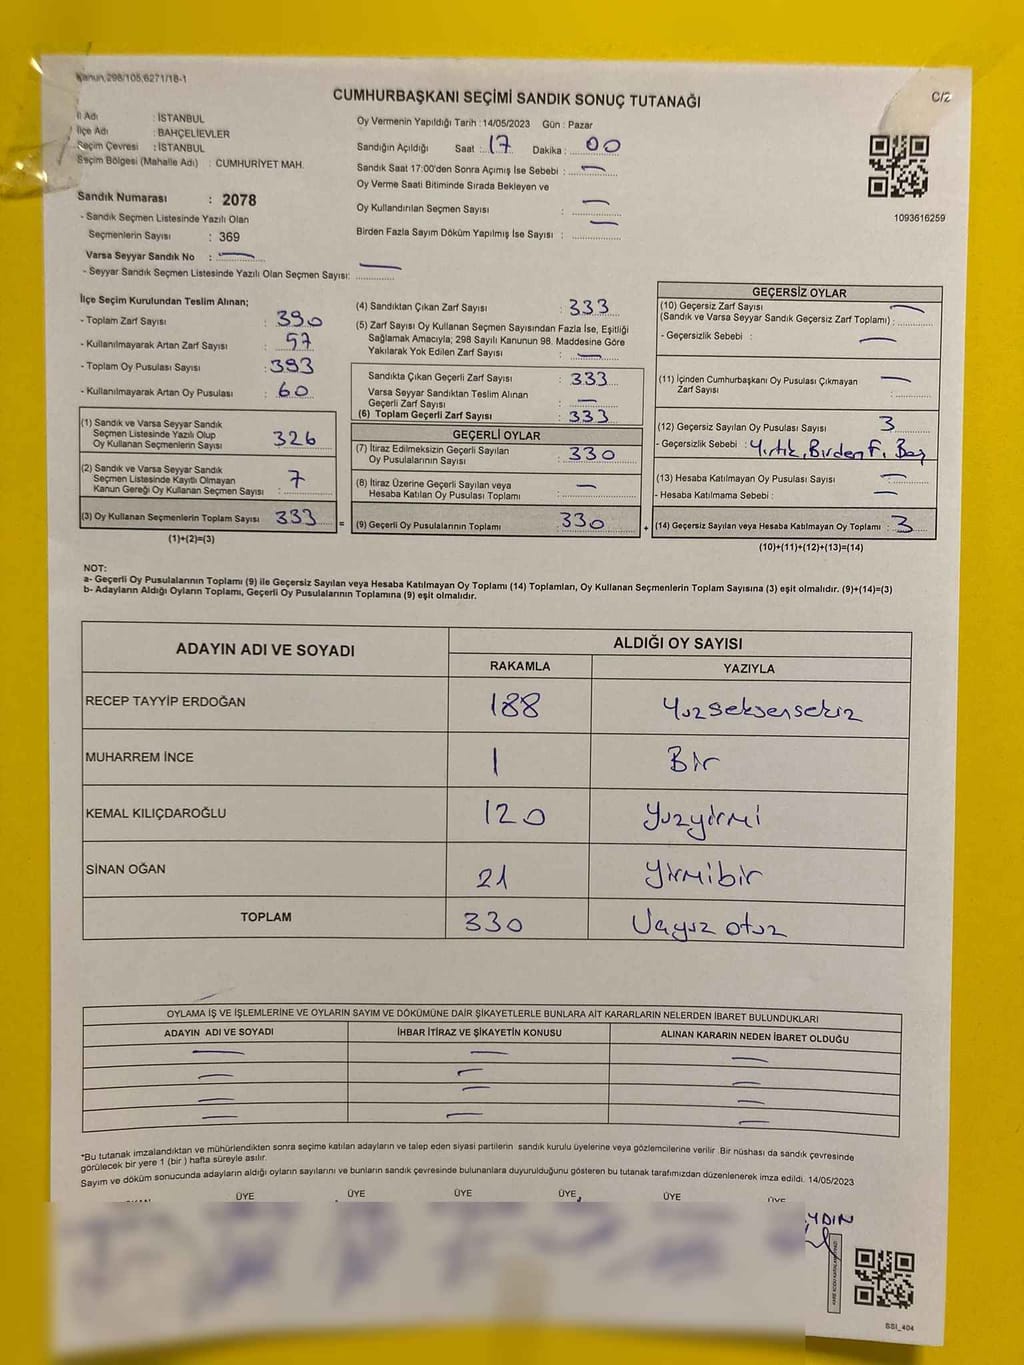 Kanun,298/105,6271/18-1
CUMHURBAŞKANI SEÇİMİ SANDIK SONUÇ TUTANAĞI
C/2
İl Adı : İSTANBUL
İlçe Adı : BAHÇELİEVLER
Seçim Çevresi : İSTANBUL
Seçim Bölgesi (Mahalle Adı) : CUMHURİYET MAH.
Sandık Numarası : 2078
- Sandık Seçmen Listesinde Yazılı Olan
Seçmenlerin Sayısı : 369
Varsa Seyyar Sandık No : —
- Seyyar Sandık Seçmen Listesinde Yazılı Olan Seçmen Sayısı: —
Oy Vermenin Yapıldığı Tarih : 14/05/2023 Gün : Pazar
Sandığın Açıldığı Saat : 17 Dakika : 00
Sandık Saat 17:00'den Sonra Açımış İse Sebebi : —
Oy Verme Saati Bitiminde Sırada Bekleyen ve
Oy Kullandırılan Seçmen Sayısı : —
Birden Fazla Sayım Döküm Yapılmış İse Sayısı : —
1093616259
İlçe Seçim Kurulundan Teslim Alınan;
- Toplam Zarf Sayısı : 390
- Kullanılmayarak Artan Zarf Sayısı : 57
- Toplam Oy Pusulası Sayısı : 393
- Kullanılmayarak Artan Oy Pusulası : 60
(1) Sandık ve Varsa Seyyar Sandık
Seçmen Listesinde Yazılı Olup
Oy Kullanan Seçmenlerin Sayısı 326
(2) Sandık ve Varsa Seyyar Sandık
Seçmen Listesinde Kayıtlı Olmayan
Kanun Gereği Oy Kullanan Seçmen Sayısı : 7
(3) Oy Kullanan Seçmenlerin Toplam Sayısı : 333
(1)+(2)=(3)
=
(4) Sandıktan Çıkan Zarf Sayısı : 333
(5) Zarf Sayısı Oy Kullanan Seçmen Sayısından Fazla İse, Eşitliği
Sağlamak Amacıyla; 298 Sayılı Kanunun 98. Maddesine Göre
Yakılarak Yok Edilen Zarf Sayısı : —
Sandıkta Çıkan Geçerli Zarf Sayısı : 333
Varsa Seyyar Sandıktan Teslim Alınan
Geçerli Zarf Sayısı : —
(6) Toplam Geçerli Zarf Sayısı : 333
GEÇERLİ OYLAR
(7) İtiraz Edilmeksizin Geçerli Sayılan
Oy Pusulalarının Sayısı : 330
(8) İtiraz Üzerine Geçerli Sayılan veya
Hesaba Katılan Oy Pusulası Toplamı : —
(9) Geçerli Oy Pusulalarının Toplamı : 330
+
GEÇERSİZ OYLAR
(10) Geçersiz Zarf Sayısı
(Sandık ve Varsa Seyyar Sandık Geçersiz Zarf Toplamı) : —
- Geçersizlik Sebebi : —
(11) İçinden Cumhurbaşkanı Oy Pusulası Çıkmayan
Zarf Sayısı : —
(12) Geçersiz Sayılan Oy Pusulası Sayısı : 3
- Geçersizlik Sebebi : Yırtık, Birden F, Boş
(13) Hesaba Katılmayan Oy Pusulası Sayısı : —
- Hesaba Katılmama Sebebi : —
(14) Geçersiz Sayılan veya Hesaba Katılmayan Oy Toplamı : 3
(10)+(11)+(12)+(13)=(14)
NOT:
a- Geçerli Oy Pusulalarının Toplamı (9) ile Geçersiz Sayılan veya Hesaba Katılmayan Oy Toplamı (14) Toplamları, Oy Kullanan Seçmenlerin Toplam Sayısına (3) eşit olmalıdır. (9)+(14)=(3)
b- Adayların Aldığı Oyların Toplamı, Geçerli Oy Pusulalarının Toplamına (9) eşit olmalıdır.
ADAYIN ADI VE SOYADI
ALDIĞI OY SAYISI
RAKAMLA YAZIYLA
RECEP TAYYİP ERDOĞAN 188 Yuzseksensekiz
MUHARREM İNCE 1 Bir
KEMAL KILIÇDAROĞLU 120 yuzyirmi
SİNAN OĞAN 21 yirmibir
TOPLAM 330 Ucyuz otuz
OYLAMA İŞ VE İŞLEMLERİNE VE OYLARIN SAYIM VE DÖKÜMÜNE DAİR ŞİKAYETLERLE BUNLARA AİT KARARLARIN NELERDEN İBARET BULUNDUKLARI
ADAYIN ADI VE SOYADI İHBAR İTİRAZ VE ŞİKAYETİN KONUSU ALINAN KARARIN NEDEN İBARET OLDUĞU
— — —
— — —
— — —
— — —
*Bu tutanak imzalandıktan ve mühürlendikten sonra seçime katılan adayların ve talep eden siyasi partilerin sandık kurulu üyelerine veya gözlemcilerine verilir .Bir nüshası da sandık çevresinde
görülecek bir yere 1 (bir ) hafta süreyle asılır.
Sayım ve döküm sonucunda adayların aldığı oyların sayılarını ve bunların sandık çevresinde bulunanlara duyurulduğunu gösteren bu tutanak tarafımızdan düzenlenerek imza edildi. 14/05/2023
ÜYE ÜYE ÜYE ÜYE ÜYE ÜYE
SSİ_404